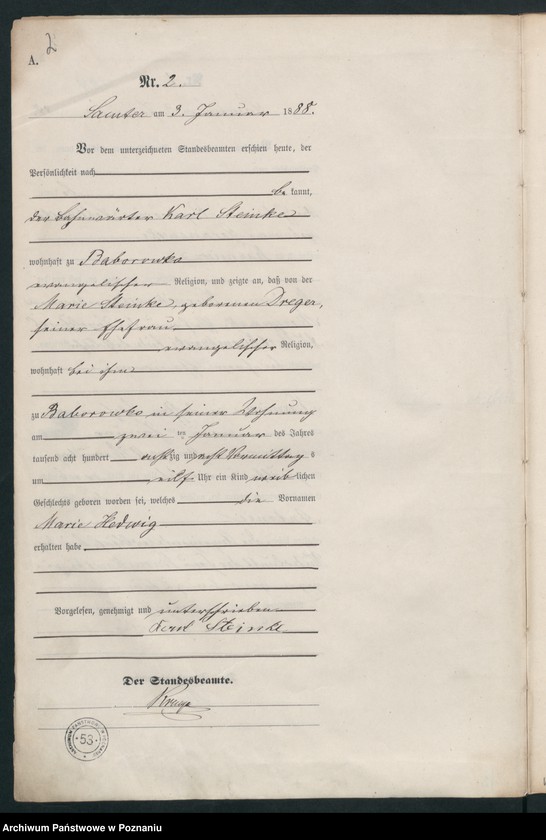 2
A.
Nr. 2.
Samter am 3. Januar 1888.
Vor dem unterzeichneten Standesbeamten erschien heute, der
Persönlichkeit nach
be kannt,
der Bahnwärter Karl Steinke
wohnhaft zu Baborowko
evangelischer Religion, und zeigte an, daß von der
Marie Steinke, geborenen Dreger,
seiner Ehefrau
evangelischer Religion,
wohnhaft bei ihm
zu Baborowko in seiner Wohnung
am zwei ten Januar des Jahres
tausend acht hundert achtzig und acht Vormittags
um eilf Uhr ein Kind weiblichen
Geschlechts geboren worden sei, welches die Vornamen
Marie Hedwig
erhalten habe
Vorgelesen, genehmigt und unterschrieben
Karl Steinke
Der Standesbeamte.
53
Archiwum Państwowe w Poznaniu